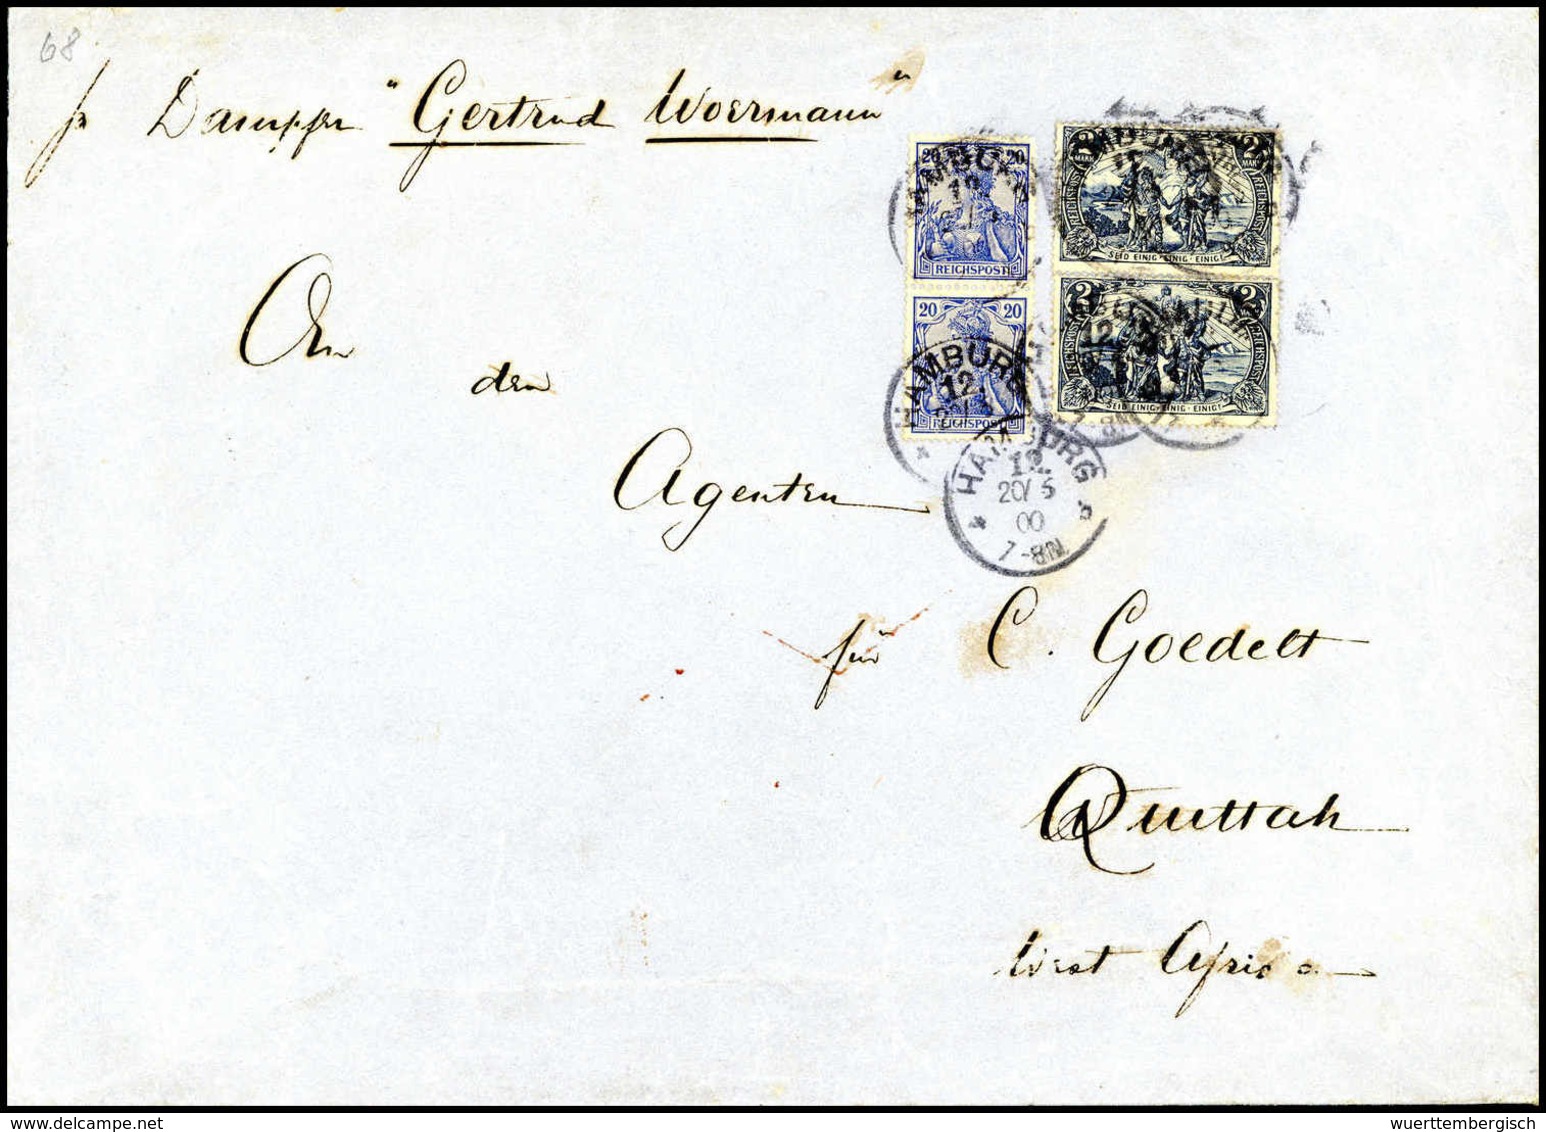 68
pr Dampfer "Gertrud Woermann"
An
den
Agenten
für C. Goedelt
Quittah
West Africa
20 20
REICHSPOST
20 20
REICHSPOST
2 MARK 2 MARK
REICHSPOST REICHSPOST
SEID EINIG·EINIG·EINIG!
2 2
REICHSPOST REICHSPOST
SEID EINIG·EINIG·EINIG!
HAMBURG
12.
HAMBURG
12.
HAMBURG
12.
20/5
00
7-8N.
* b
wuerttembergisch